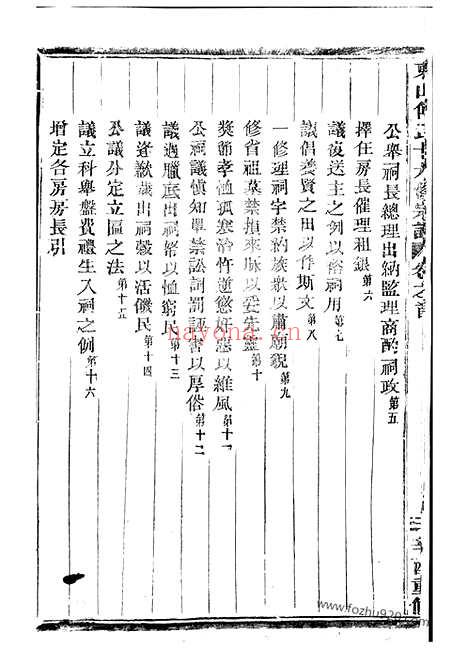 公舉祠長總理出納監理商酌祠政第五
擇任房長催理租銀第六
議復送主之例以裕祠用第七
議倡義賢之田以作斯文第八
一修理祠宇禁約族衆以肅廟貌第九
修省祖墓禁損來脉以妥先靈第十
獎節孝恤孤寡治忤逆懲以維風第十一
公祠議慎知單禁訟詞罰訟害以厚俗第十二
議遇臘底出祠帑以恤窮民第十三
議逢歉歲出祠穀以活饑民第十四
公議分定立區之法第十五
議立科舉盤費禮生入祠之例第十六
增定各房房長引
nayona.cn
www.fozhu920.com